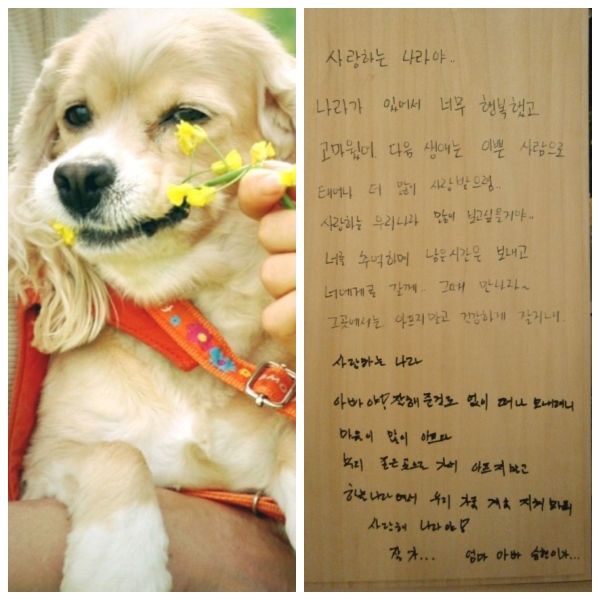 사랑하는 나라야..
나라가 있어서 너무 행복했고
고마웠어 다음 생애는 이쁜 사람으로
태어나 더 많이 사랑받으렴..
사랑하는 우리나라 많이 보고싶을거야..
너를 추억하며 남은시간을 보내고
너에게로 갈게.. 그때 만나자~
그곳에서는 아프지말고 건강하게 잘지내..
사랑하는 나라
아빠야! 잘해준것도 없이 떠나 보내려니
마음이 많이 아프다
부디 좋은곳으로 가서 아프지 말고
하늘나라에서 우리 가족 계속 지켜봐줘
사랑해 나라야!
잘 가... 엄마 아빠